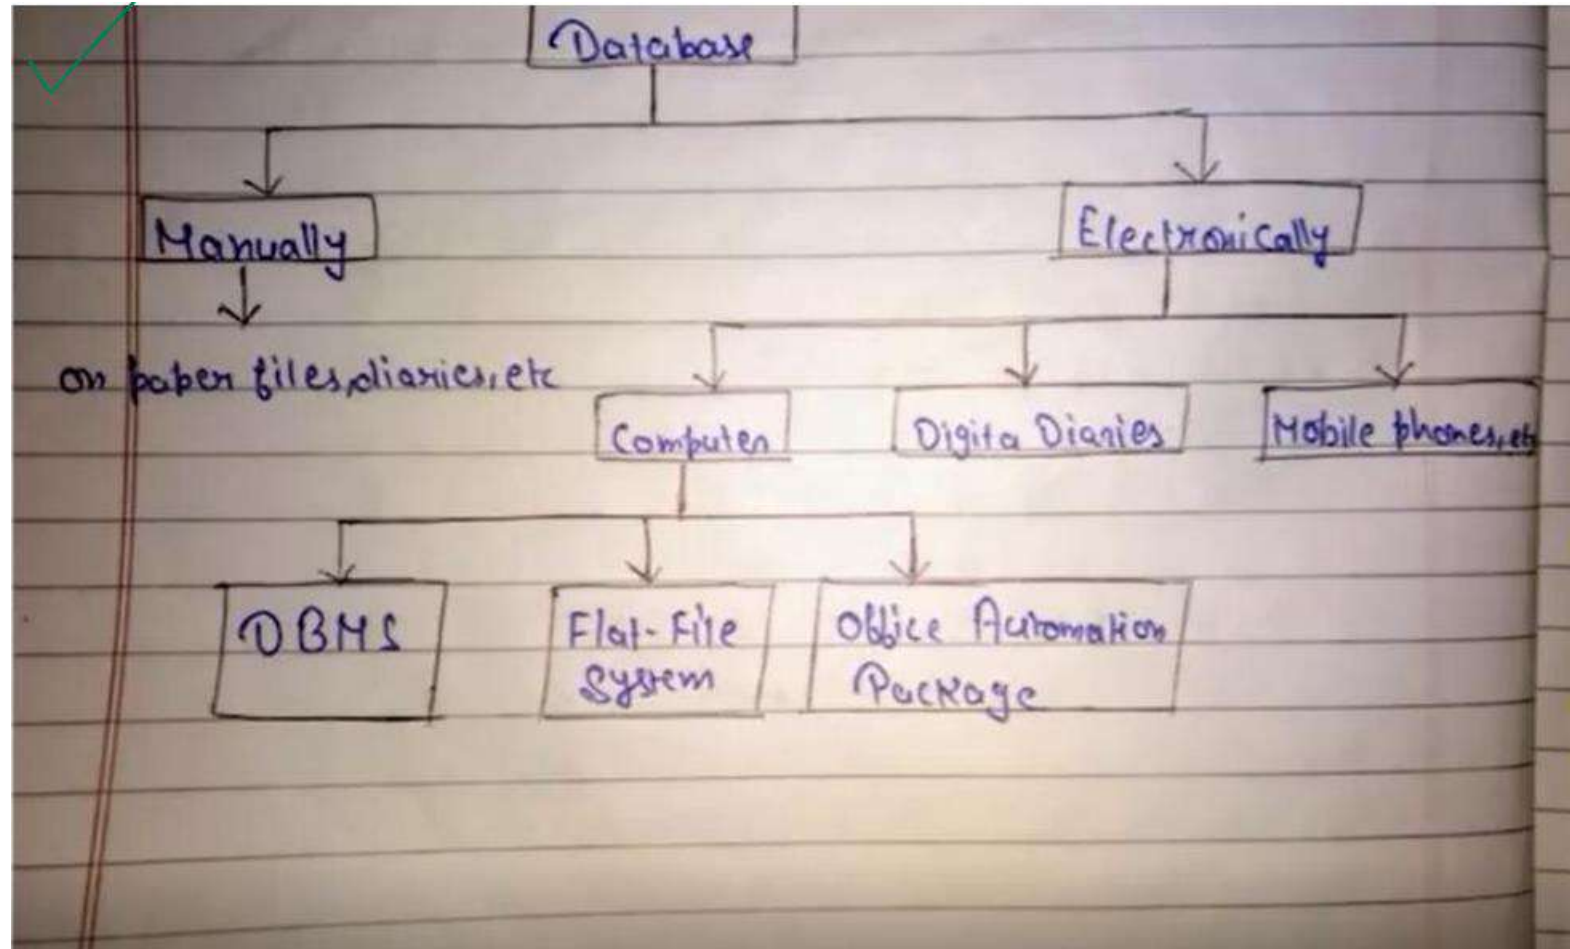 Database
Manually
Electronically
on paper files, diaries, etc
Computer
Digita Diaries
Mobile phones, etc
DBMS
Flat-File
System
Office Automation
Package